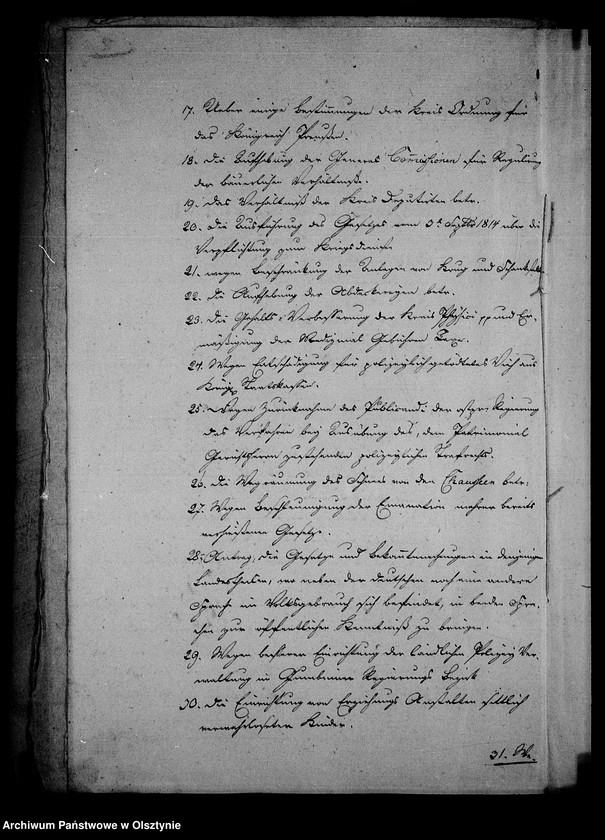 17. Ueber einige Bestimmungen der Kreis Ordnung für
das Königreich Preußen.
18. Die Aufhebung der General Commissionen für Regulirung
der bäuerlichen Verhältnisse.
19. Das Verhältniß der Kreis Deputirten betr.
20. Die Ausführung des Gesetzes vom 3t Septbr 1814 über die
Verpflichtung zum Kriegsdienste
21. wegen Beschränkung der Anlagen von Krug und
22. Die Aufhebung der Abdeckereien betr.
23. Die Gehalts-Verbesserung der Kreis Physici pp und Er-
mäßigung der Medizinal Gebühren Taxe.
24. Wegen Entschädigung für polizeylich getödtetes Vieh aus
Königl Staatskassen.
25. Wegen Zurücknahme des Publicand: der ostpr: Regierung
das Verfahren bey Ausübung des, dem Patrimonial
Gerichtsherrn zustehenden polizeylichen Strafrechts.
26. Die Wegräumung des Schnees von den Chausseen betr:
27. Wegen Beschleunigung der Emanation mehrer bereits
verheißener Gesetze.
28. Antrag, die Gesetze und Bekanntmachungen in denjenigen
Landestheilen, wo neben der deutschen noch eine andere
Sprache im Volksgebrauch sich befindet, in beiden Spra-
chen zur öffentlichen Kenntniß zu bringen.
29. Wegen besserer Einrichtung der ländlichen Polizey Ver-
waltung im Gumbinner Regierungs Bezirk
30. Die Einrichtung von Erziehungs Anstalten sittlich
verwahrloseter Kinder.
31. We.
Archiwum Państwowe w Olsztynie